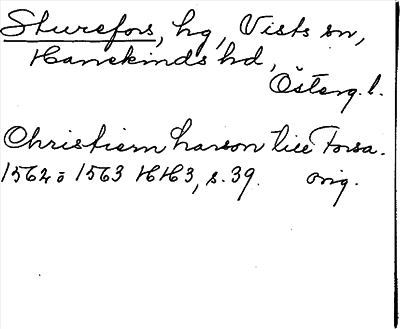 Sturefors, hg, Vists sn,
Hanekinds hd,
Österg.l.
Christiern Larson till Forsa.
1562 o 1563 HH3, s.39. orig.